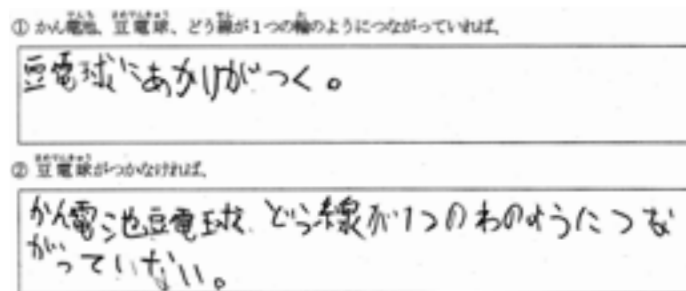 ① かん電池、豆電球、どう線が１つの輪のようにつながっていれば、
豆電球にあかりがつく。
② 豆電球がつかなければ、
かん電池豆電球、どう線が1つのわのようにつな
がっていない。